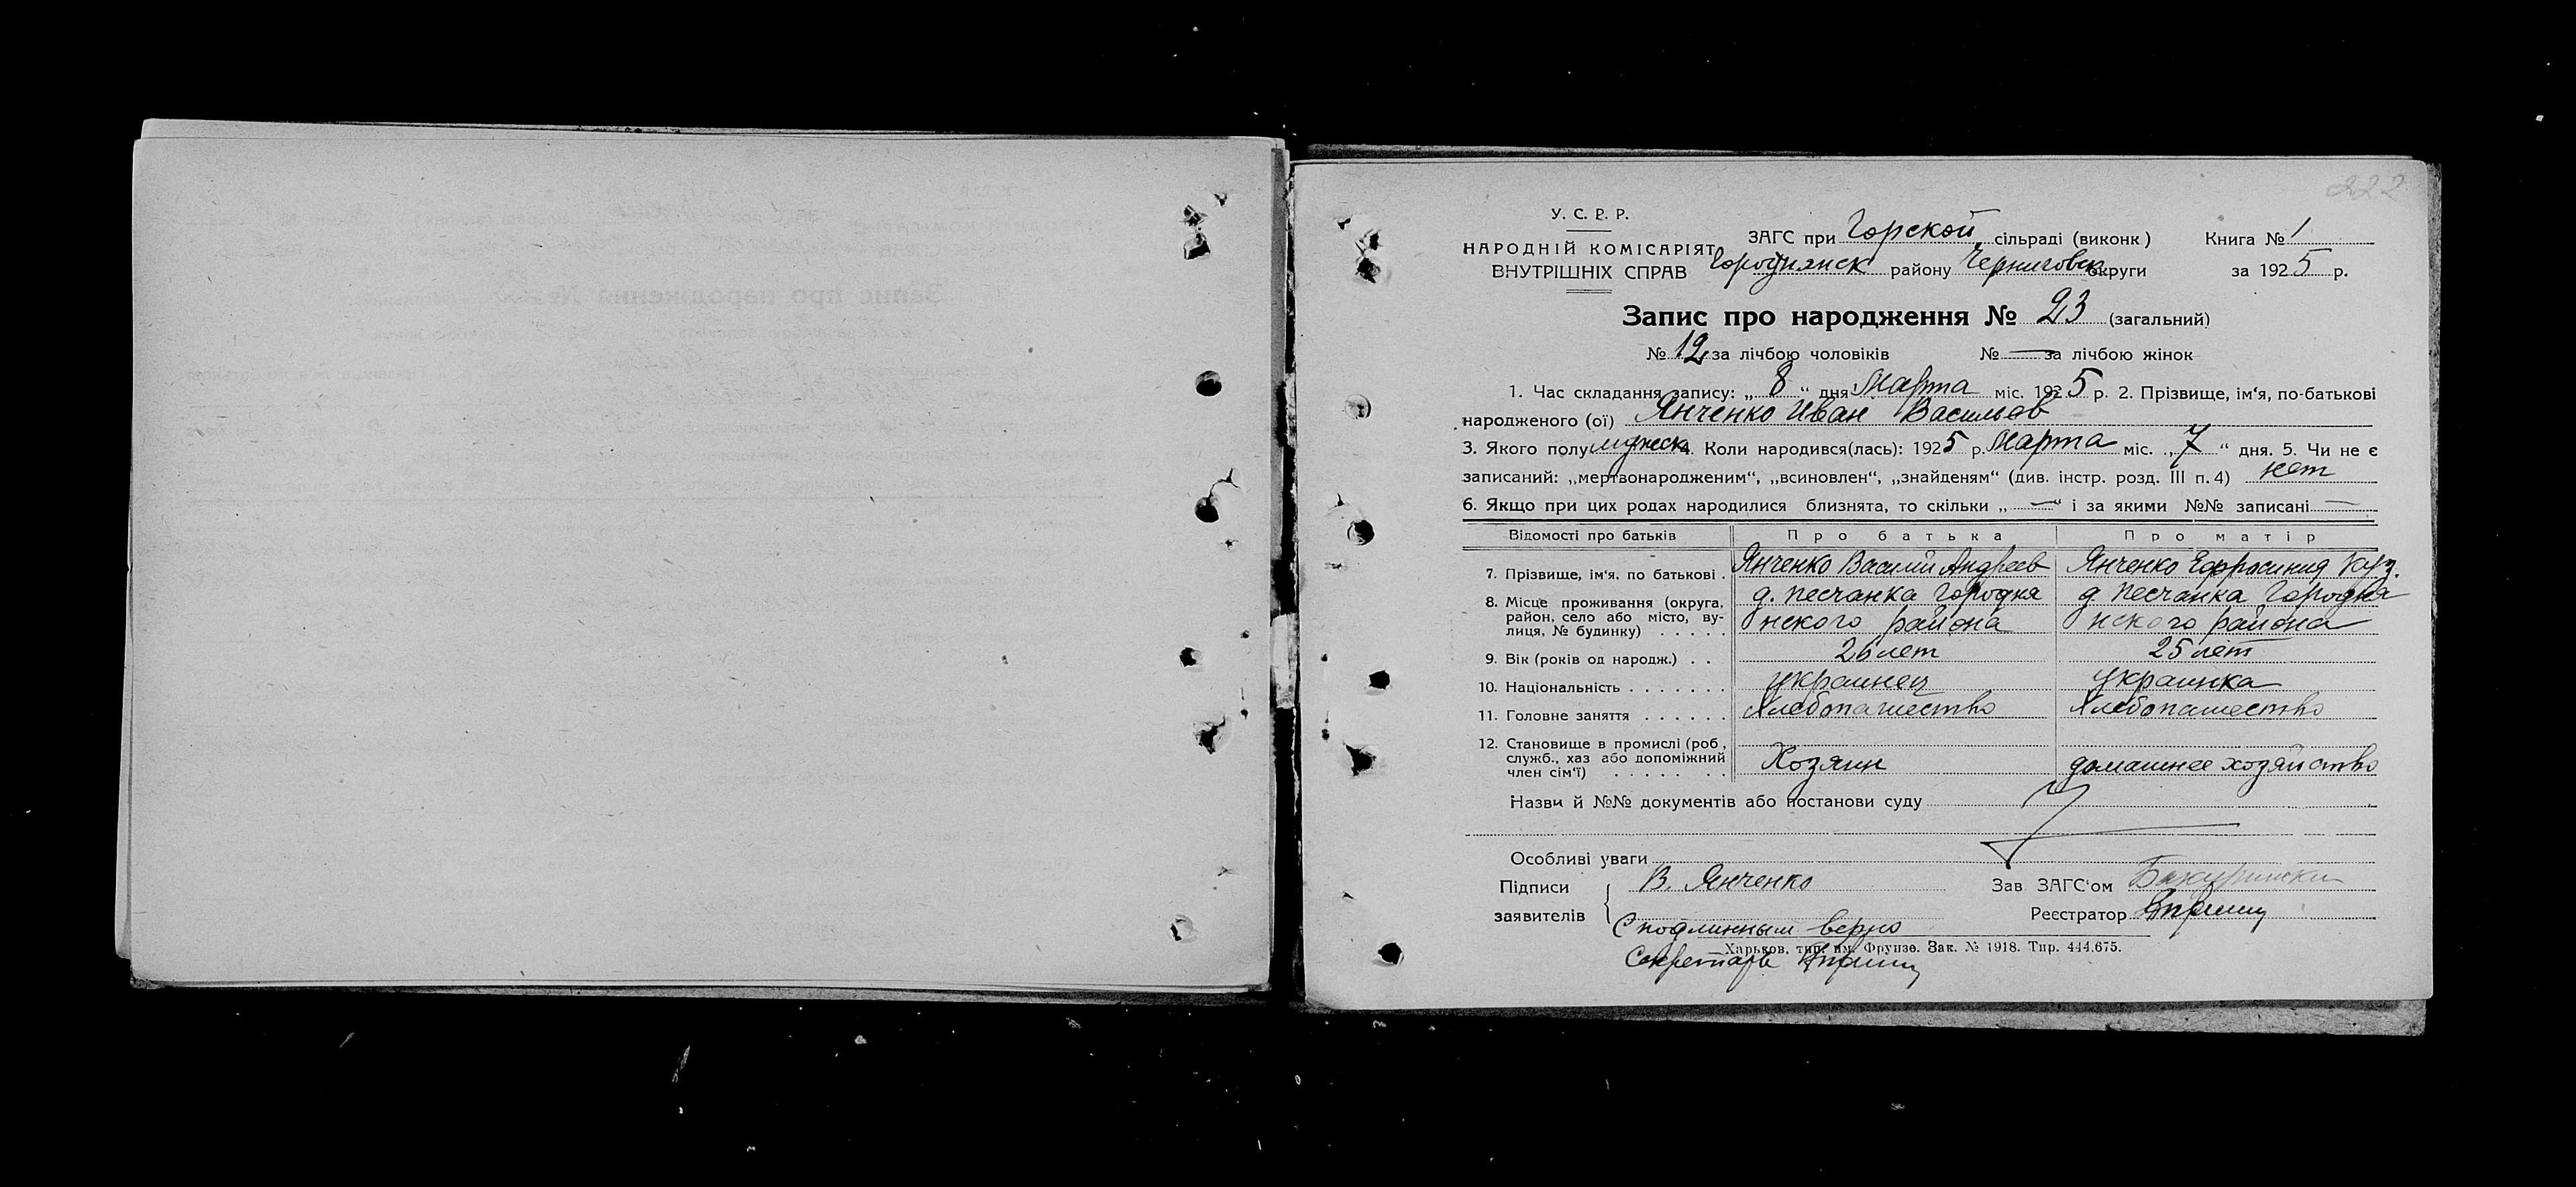 222
У. С. Р. Р.
НАРОДНІЙ КОМІСАРІЯТ
ВНУТРІШНІХ СПРАВ
ЗАГС при Горской сільраді (виконк) Книга № 1
Городнянск району Черниговск округи за 1925 р.
Запис про народження № 23 (загальний)
№ 12 за лічбою чоловіків № — за лічбою жінок
1. Час складання запису: „ 8 “ дня Марта міс. 1925 р. 2. Прізвище, ім'я, по-батькові
народженого (ої) Янченко Иван Васильев
3. Якого полу мужск 4. Коли народився(лась): 1925 р. Марта міс. „ 7 “ дня. 5. Чи не є
записаний: „мертвонародженим“, „всиновлен“, „знайденям“ (див. інстр. розд. III п. 4) нет
6. Якщо при цих родах народилися близнята, то скільки „ — “ і за якими №№ записані —
Відомості про батьків Про батька Про матір
7. Прізвище, ім'я. по батькові . Янченко Василий Андреев Янченко Ефросиния Куз.
8. Місце проживання (округа, район, село або місто, вулиця, № будинку) . . . . . д. Песчанка Городня д. Песчанка Городня
нского района нского района
9. Вік (років од народж.) . . 26 лет 25 лет
10. Національність . . . . . . . украинец украинка
11. Головне заняття . . . . . . Хлебопашество Хлебопашество
12. Становище в промислі (роб, служб., хаз або допоміжний член сім'ї) . . . . . . . Хозяин домашнее хозяйство
Назви й №№ документів або постанови суду
Особливі уваги
Підписи В. Янченко Зав ЗАГС'ом
заявителів Реєстратор
С подлинным верно
Харьков, тип. им. Фрунзе. Зак. № 1918. Тир. 444.675.
Секретарь